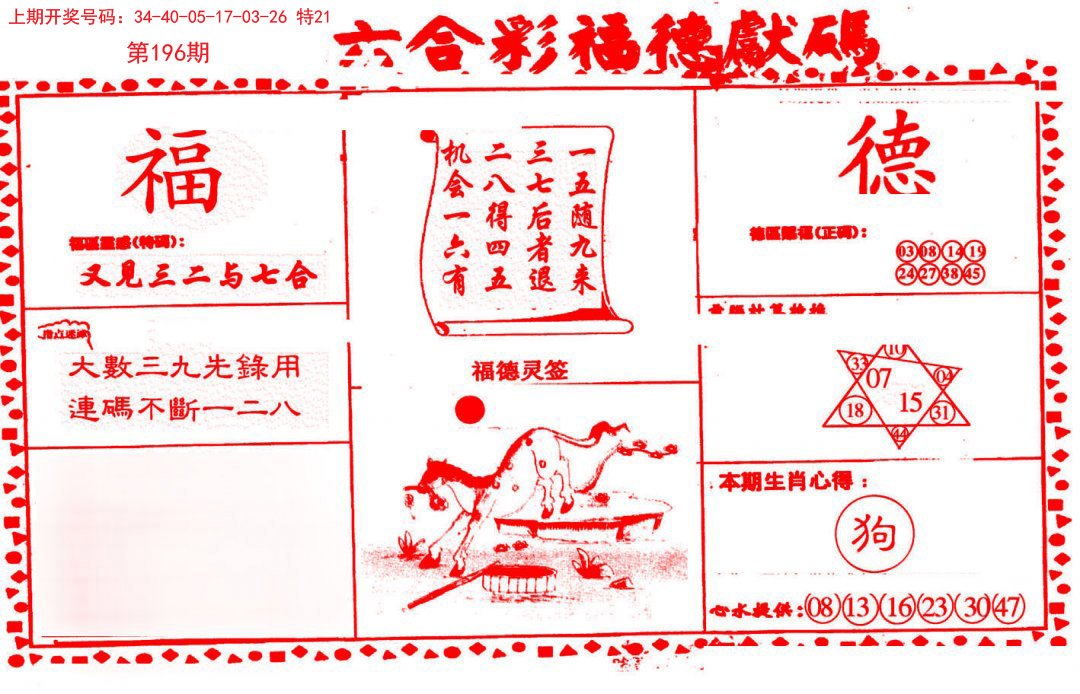 上期开奖号码：34-40-05-17-03-26 特21
第196期
六合彩福德獻碼
福
福區靈感(特碼)：
又見三二与七合
大數三九先錄用
連碼不斷一二八
一五随九来
三七后者退
二八得四五
机会一六有
福德灵签
德
德區賜福(正碼)：
03 08 14 19
24 27 38 45
10
33 07 04
18 15 31
44
本期生肖心得：
狗
心水提供：08 13 16 23 30 47